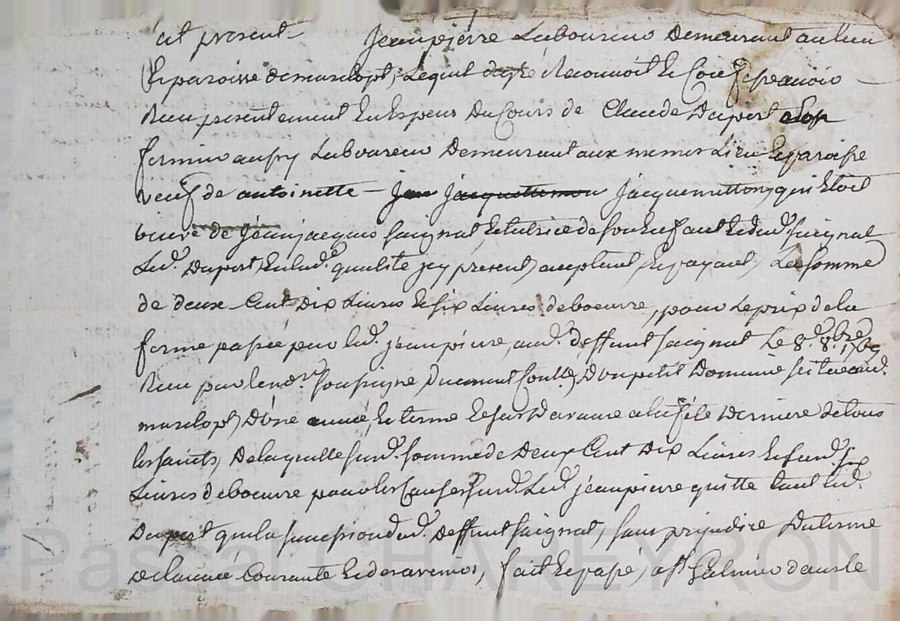 fut present Jean pierre Laboureur Demeurant au lieu
Et paroisse de marclopt, Lequel de gré Reconnoit Et Confesse avoir
Reçu presentement En Espece Du Cours de Claude Duport
fermier Laboureur Demeurant aux memes Lieu Et paroisse
veuf de antoinette Jacquemetton, qui Etoit
veuve de Jean jacques saignat, Et tutrice de son Enfant Et dud. saignat
Led. Duport, En lad. qualité, icy present, acceptant, Et payant, La somme
de deux Cent Dix Livres Et six Livres de boeurre, pour Le prix de la
ferme passée par led. jean pierre, aud. deffunt saignat Le 8e 8bre 1769
Reçu par Le no.re soussigné, D'un petit Domaine scitué aud.
marclopt, D'une année, Et terme Echus D'avance a la fête Derniere de tous
les saints, De laquelle susd. somme de Deux Cent Dix Livres Et susd. six
Livres de boeurre pour les Causes susd. Led. jean pierre quitte tant led.
Duport que la succession dud. Deffunt saignat, sans prejudice Du terme
De l'année Courante Et des avenir, fait Et passé, a st Galmier dans le
Pascal CHAREYRON